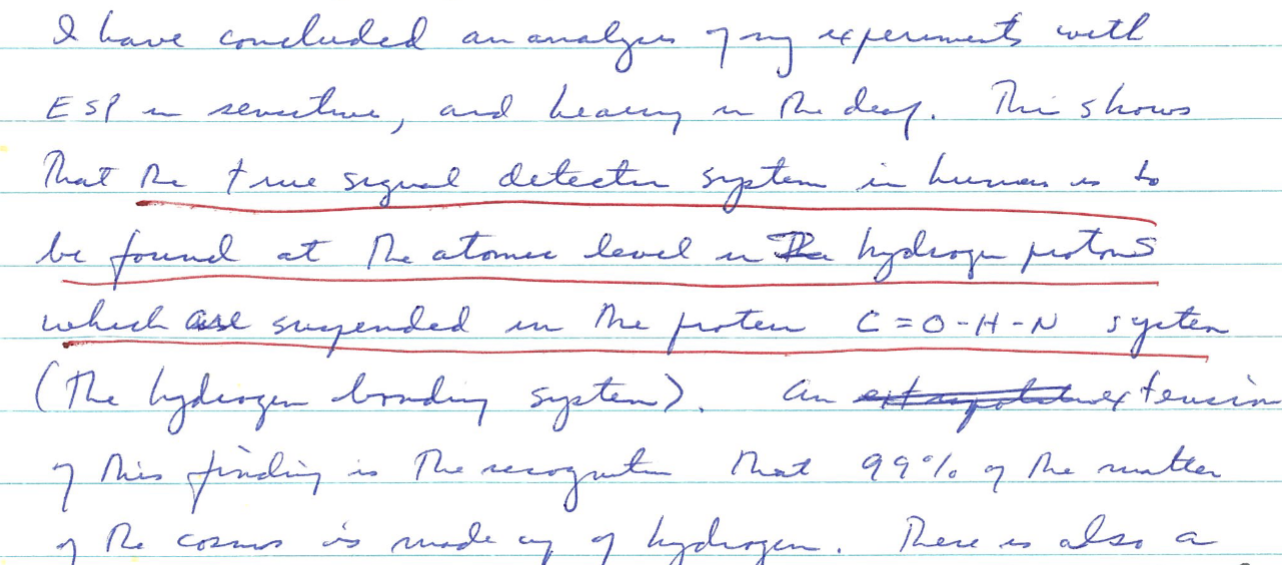 I have concluded an analysis of my experiments with
ESP in sensitive, and hearing in the deaf. This shows
That the true signal detector system in human is to
be found at the atomic level in the hydrogen protons
which are suspended in the protein C=O-H-N system
(The hydrogen bonding system). An extension
of this finding is the recognition that 99% of the matter
of the cosmos is made up of hydrogen. There is also a